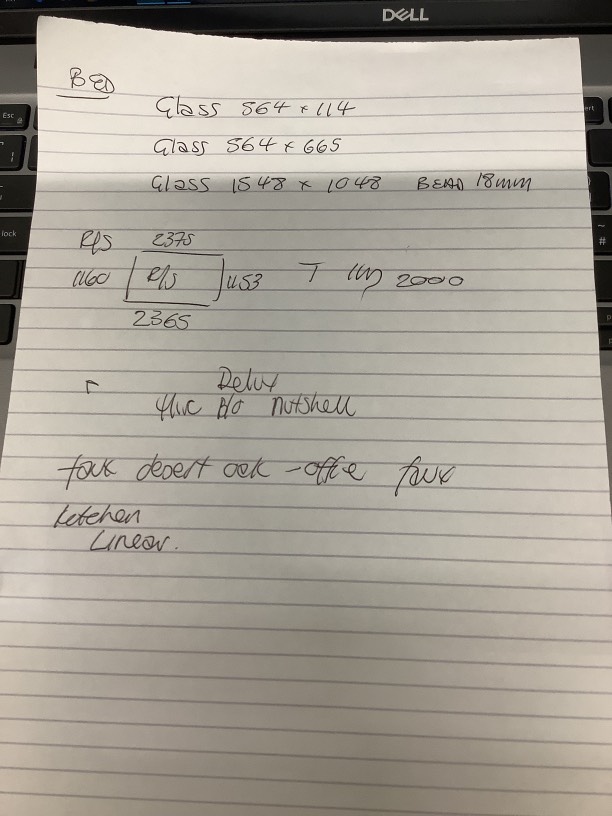 DELL
BED
Glass 564 x 114
Glass 564 x 665
Glass 1548 x 1048 BEAD 18mm
2375
1160 1153 T 2000
2365
Delux
B/O Nutshell
faux desert oak - office faux
kitchen
Linear.
Esc
lock
#